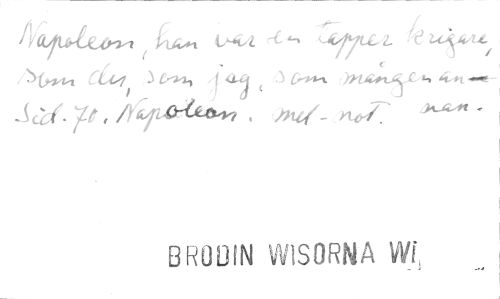 Napoleon, han var en tapper krigare,
som du, som jag, som mången an-
Sid. 70. Napoleon. mel-not. nan.
BRODIN WISORNA Wi